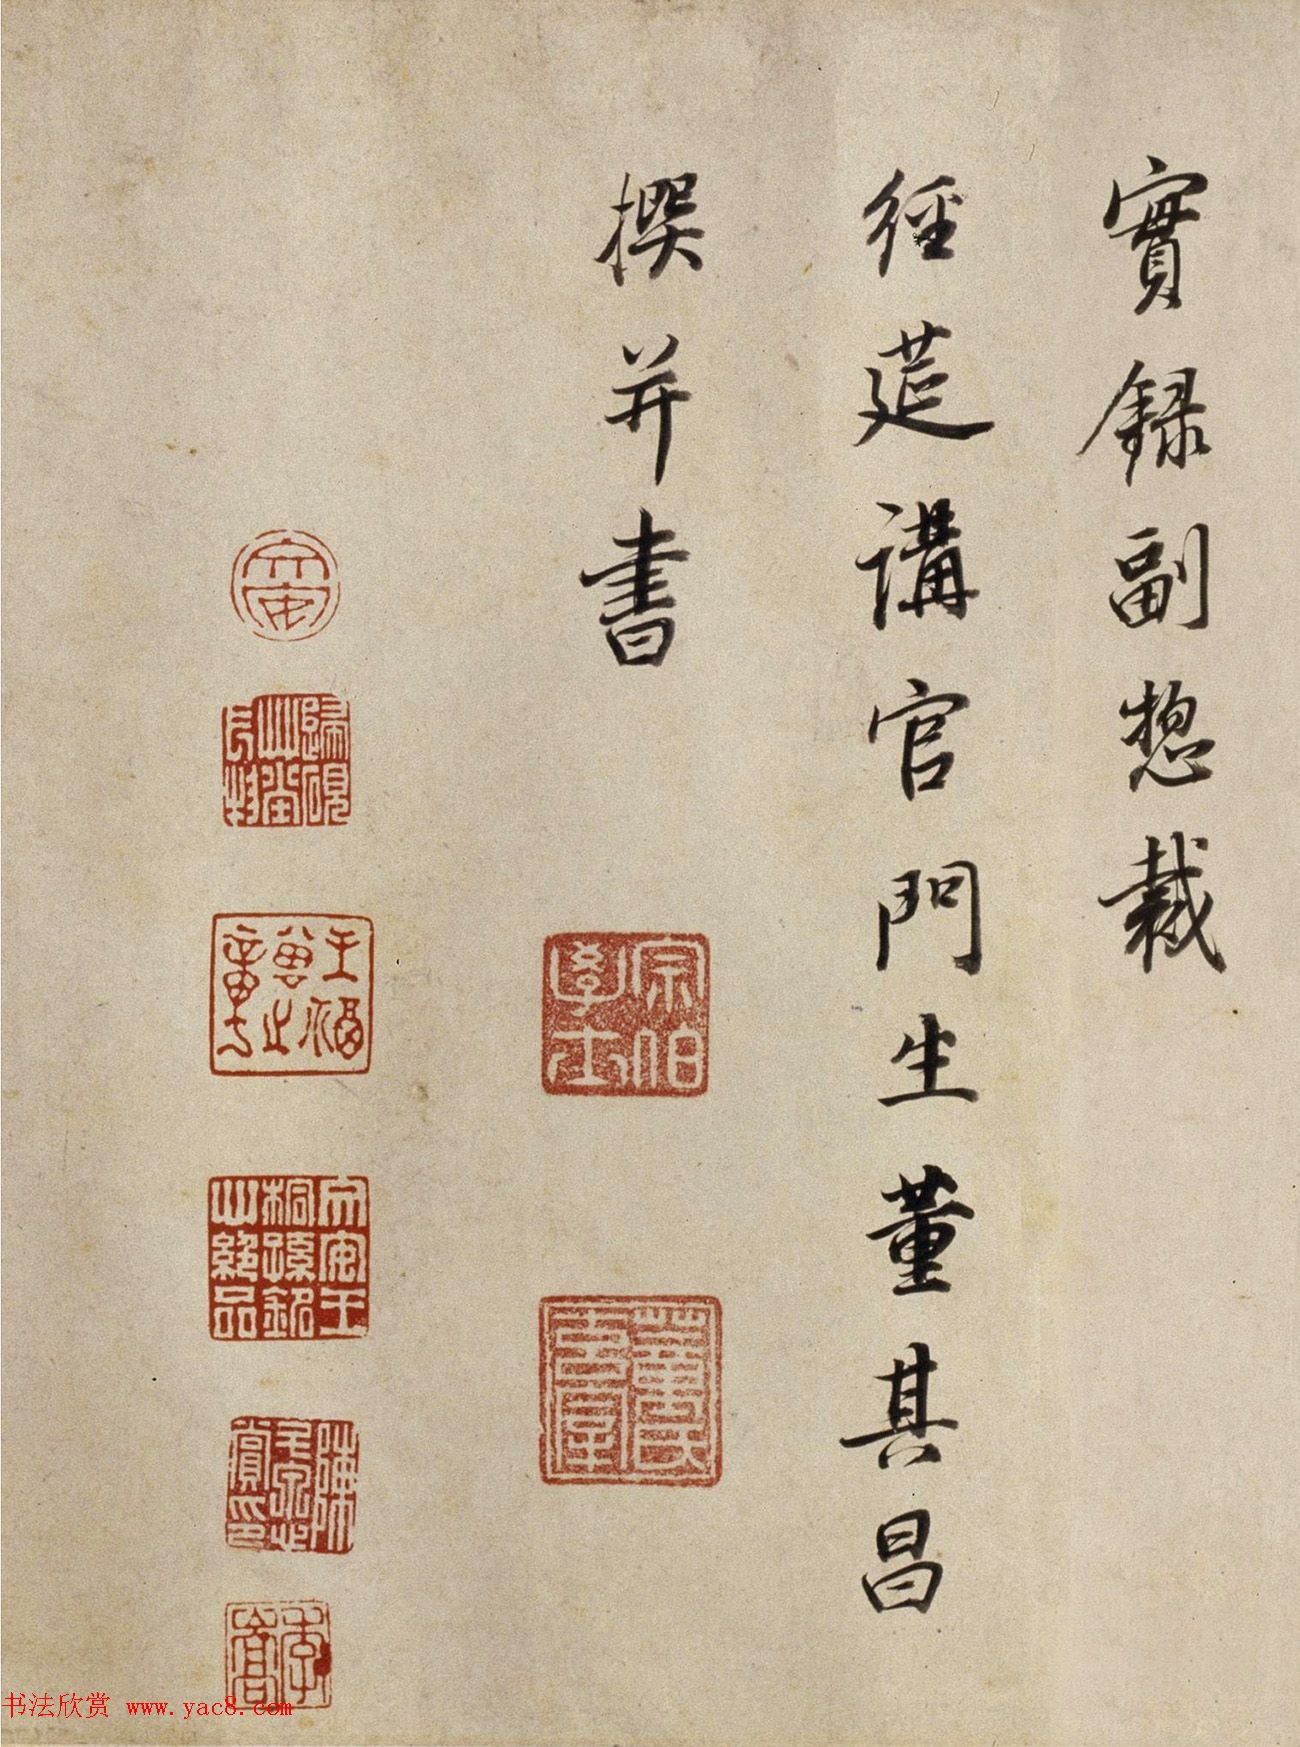 實録副惣裁
經莚講官門生董其昌
撰并書
宗伯學士
董氏玄宰
書法欣賞 www.yac8.com